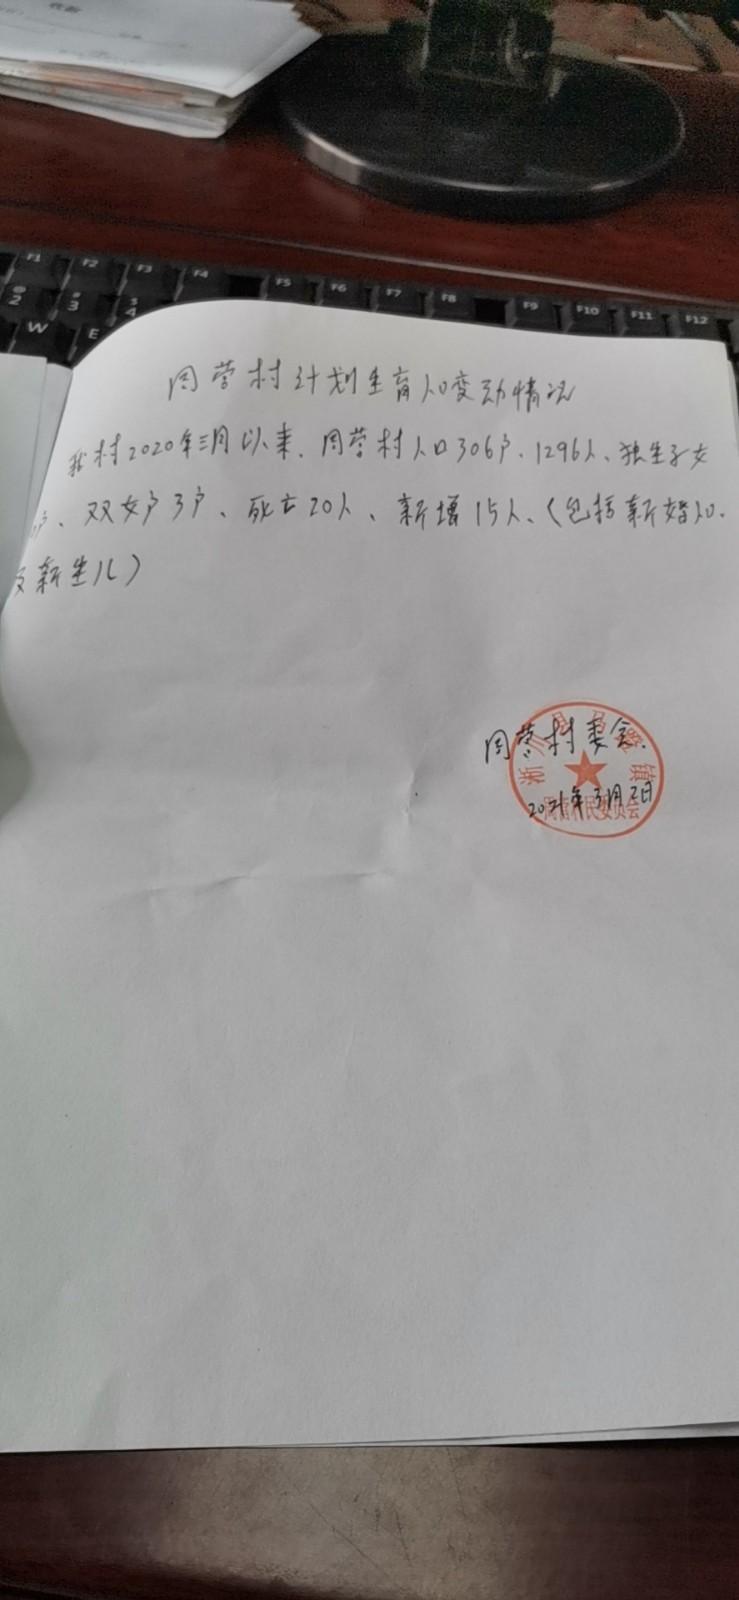 F1 F2 F3 F4 F5 F6 F7 F8 F9 F10 F11 F12
2 3 4
W E
周营村计划生育人口变动情况
我村2020年三月以来、周营村人口306户、1296人、独生子女
户、双女户3户、死亡20人、新增15人、(包括新婚人口、
及新生儿)
周营村委会.
2021年3月2日
淅川县 镇
周营村民委员会